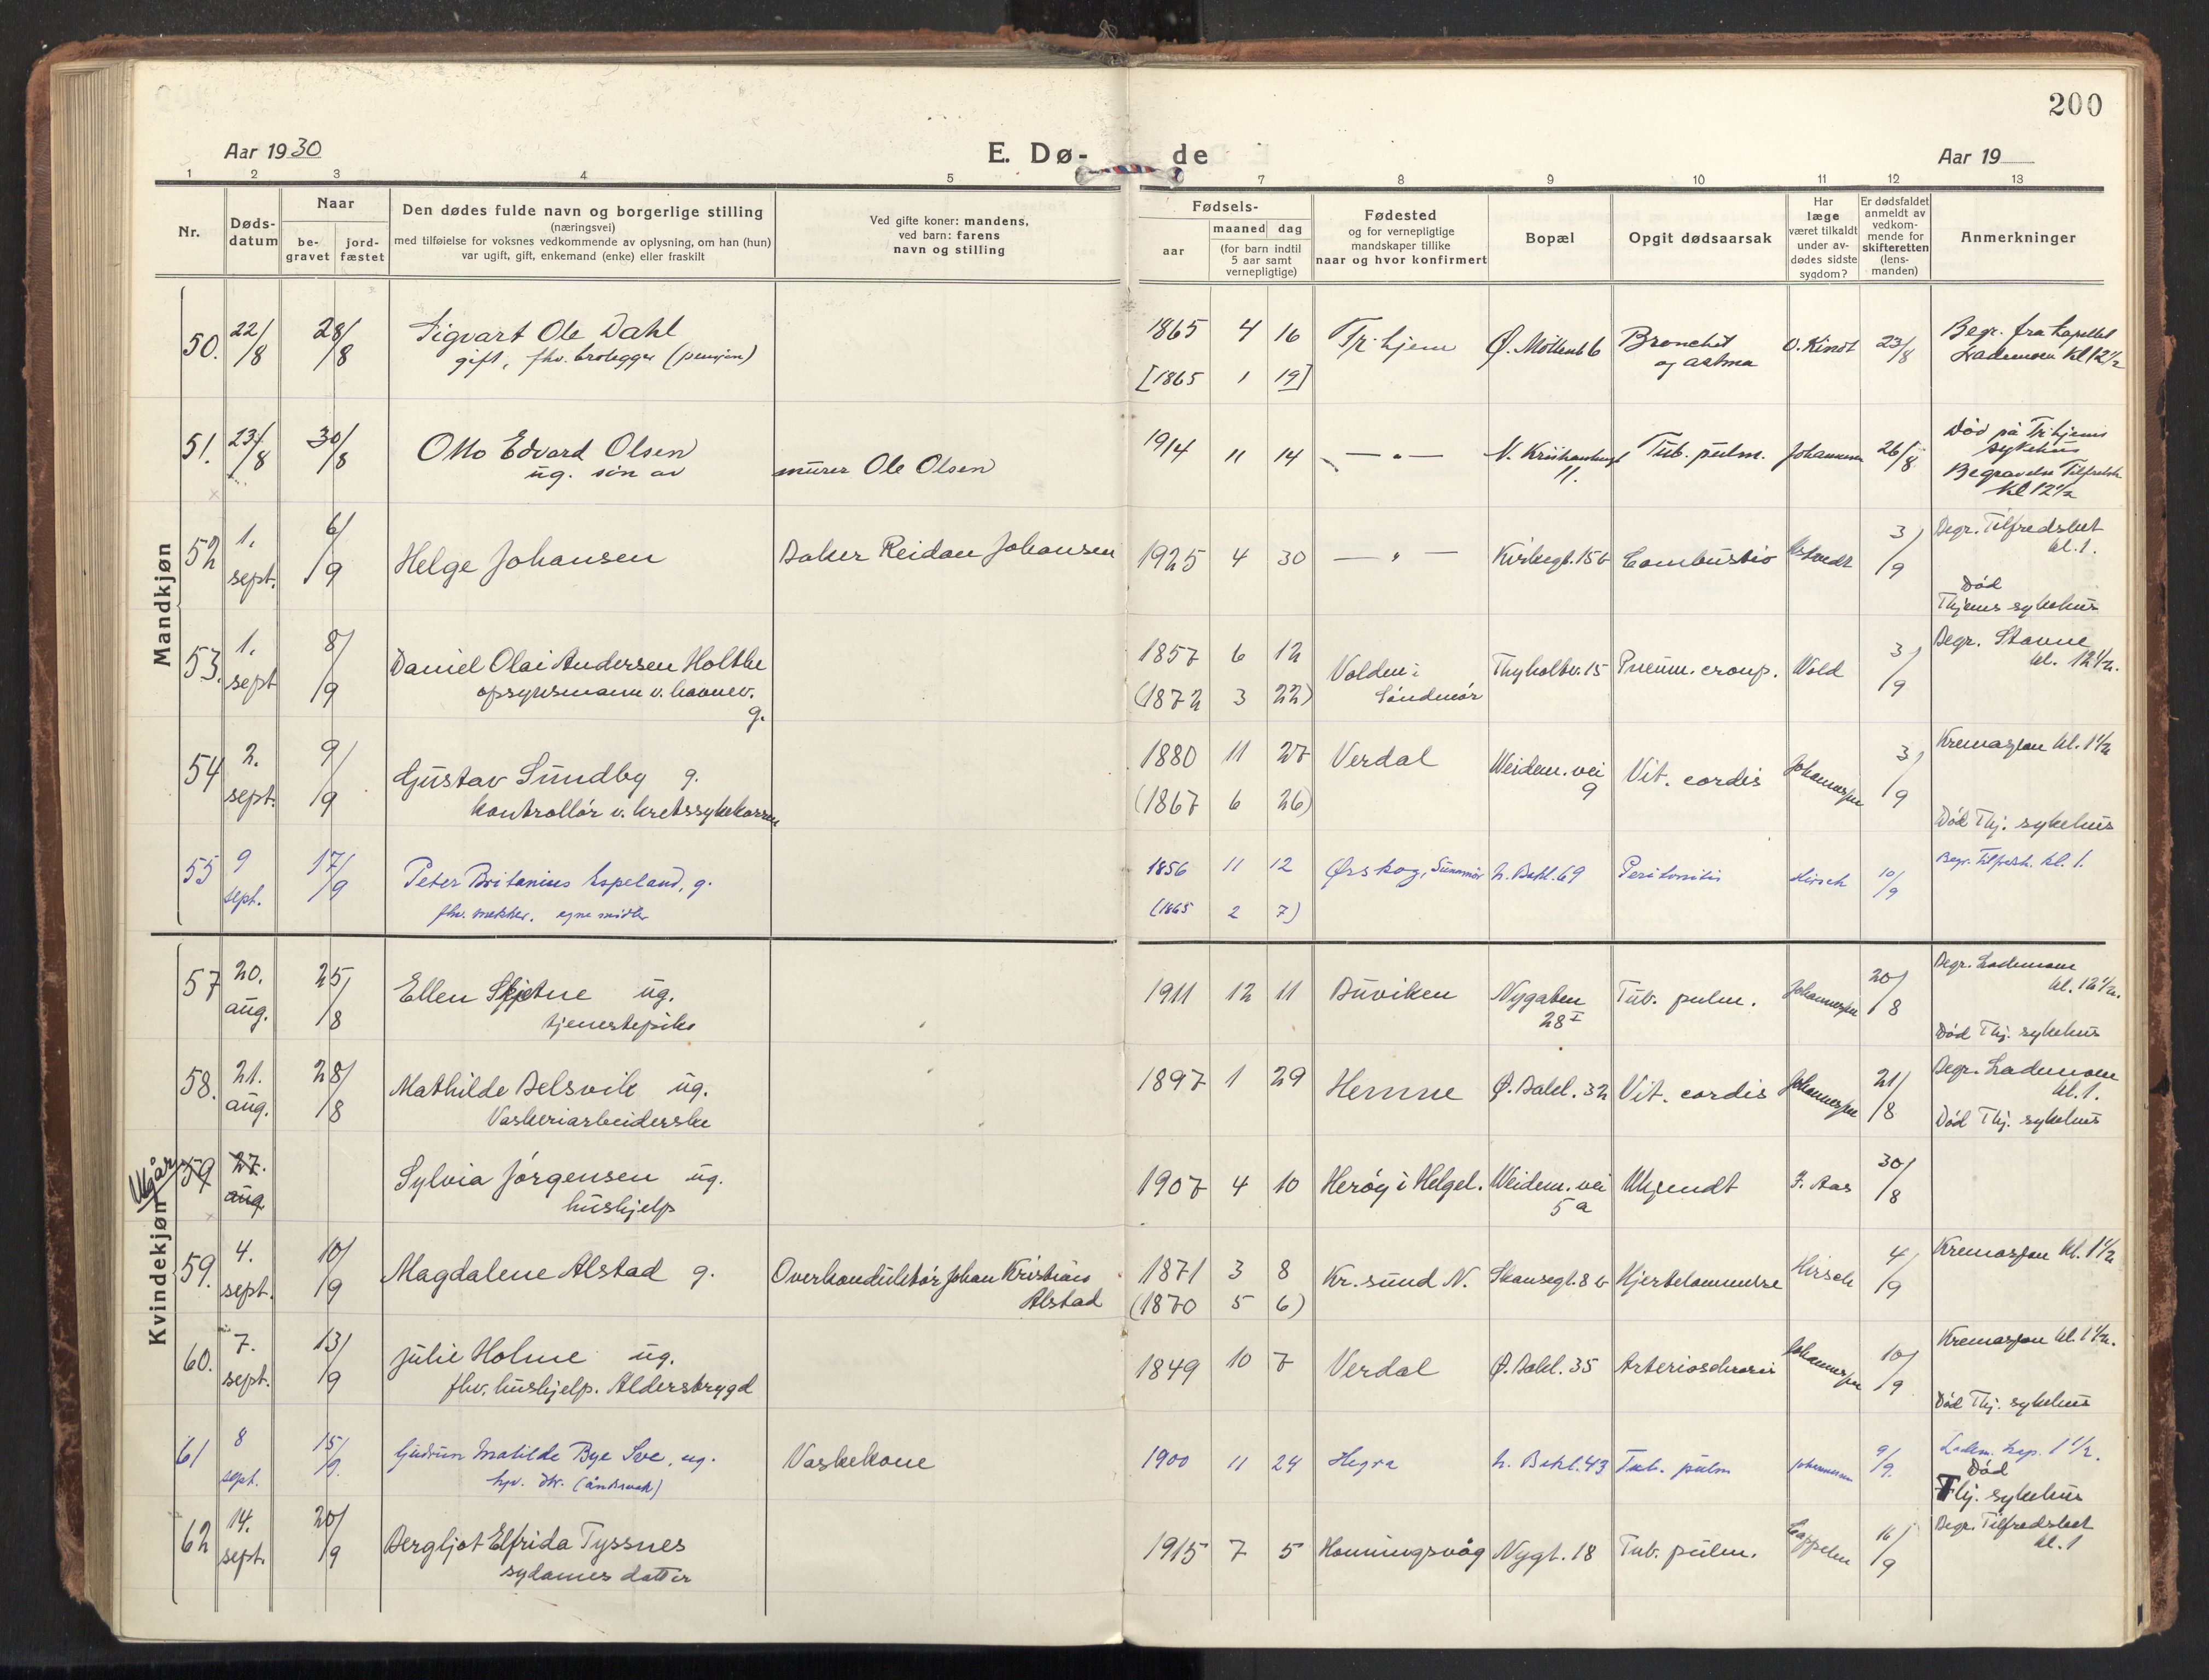 200
Aar 1930
E. Dø-
de
Aar 19
1 2 3 4 5 7 8 9 10 11 12 13
Nr.
Døds-
datum
Naar
be-
gravet
jord-
fæstet
Den dødes fulde navn og borgerlige stilling
(næringsvei)
med tilføielse for voksnes vedkommende av oplysning, om han (hun)
var ugift, gift, enkemand (enke) eller fraskilt
Ved gifte koner: mandens,
ved barn: farens
navn og stilling
Fødsels-
aar
maaned dag
(for barn indtil
5 aar samt
vernepligtige)
Fødested
og for vernepligtige
mandskaper tillike
naar og hvor konfirmert
Bopæl
Opgit dødsaarsak
Har
læge
været tilkaldt
under av-
dødes sidste
sygdom?
Er dødsfaldet
anmeldt av
vedkom-
mende for
skifteretten
(lens-
manden)
Anmerkninger
Mandkjøn
50. 22/8 28/8 Sigvart Ole Dahl 1865 4 16 Tr.hjem Ø. Møllenb 6 Bronchit O. Kindt 23/8 Begr. fra kapellet
gift, fhv. brolegger (pensjon) [1865 1 19] og astma Lademoen kl 12½
51. 23/8 30/8 Otto Edvard Olsen murer Ole Olsen 1914 11 14 — " — 11. Tub. pulm. Johannessen 26/8 Død på Tr.hjems
ug. søn av sykehus
Begravelse Tilfredsh
kl 12½
52 1. sept. 6/9 Helge Johansen Baker Reidar Johansen 1925 4 30 — " — Kirkegt. 15 b Combustio 3/9 Begr. Tilfredshet
kl. 1.
Død
Thjems sykehus
53. 1. sept 8/9 Daniel Olai Andersen Holthe 1857 6 12 Volden i Thyholtv. 15 Pneum. croup. Wold 3/9 Begr. Stavne
opsynsmann v. havnev. (1872 3 22) Søndmør kl. 12½.
g.
54 2. sept. 9/9 Gustav Sundby g. 1880 11 27 Verdal Weidem. vei 9 Vit. cordis Johannessen 3/9 Kremasjon kl. 1½
kontrollør v. kretssykekassen (1867 6 26) Død Thj. sykehus
55 9 sept. 17/9 Peter Britanius Espeland, g. 1856 11 12 Ørskog, Sunnmør N. Bakl. 69 Peritonitis Hirsch 10/9 Begr. Tilfredsh. kl. 1.
fhv. mekker. egne midler (1865 2 7)
Kvindekjøn
57 20. aug. 25/8 Ellen Skjetne ug. 1911 12 11 Buviken Nygaten 28 I Tub. pulm. Johannessen 20/8 Begr. Lademoen
tjenestepike kl. 12½.
Død Thj. sykehus
58. 21. aug. 28/8 Mathilde Belsvik ug. 1897 1 29 Hemne Ø. Bakl. 32 Vit. cordis Johannessen 21/8 Begr. Lademoen
Vaskeriarbeiderske kl. 1.
Død Thj. sykehus
Utgår 59 27. aug. Sylvia Jørgensen ug. 1907 4 10 Herøy i Helgel. Weidem. vei 5 a Ukjendt F. Aas 30/8
hushjelp
59. 4. sept. 10/9 Magdalene Alstad g. Overkonduktør Johan Kristians 1871 3 8 Kr.sund N. Skansegt. 8 b Hjertelammelse Hirsch 4/9 Kremasjon kl. 1½
Alstad (1870 5 6)
60. 7. sept. 13/9 Julie Holme ug. 1849 10 7 Verdal Ø. Bakl. 35 Johannessen 10/9 Kremasjon kl. 1½.
fhv. hushjelp. Alderstrygd Død Thj. sykehus
61 8 sept. 15/9. Gudrun Matilde Bye Sve, ug. Vaskekone 1900 11 24 Hegra N. Bakl. 43 Tub. pulm Johannessen 9/9. Ladem. kap. 1½.
Død
Thj. sykehus
62 14. sept. 20/9 Bergljot Elfrida Tyssnes 1915 7 5 Honningsvåg Nygt. 18 Tub. pulm. Cappelen 16/9 Begr. Tilfredshet
sydames datter kl. 1